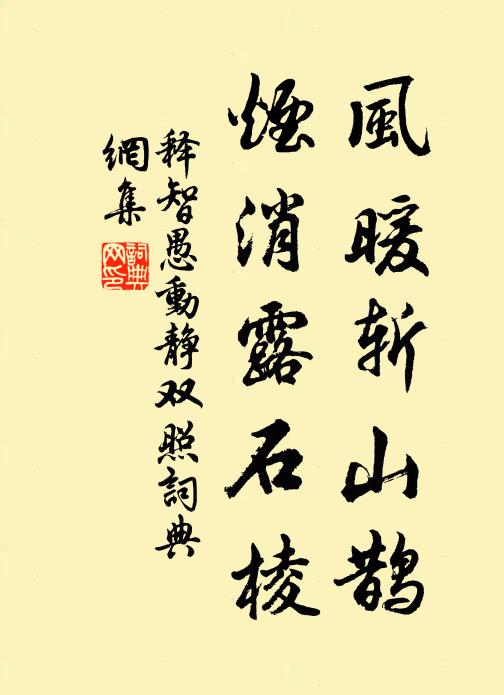 風暖斩山鵲
煙消露石棱
释智愚動静双照詞典
網集
詞典網印